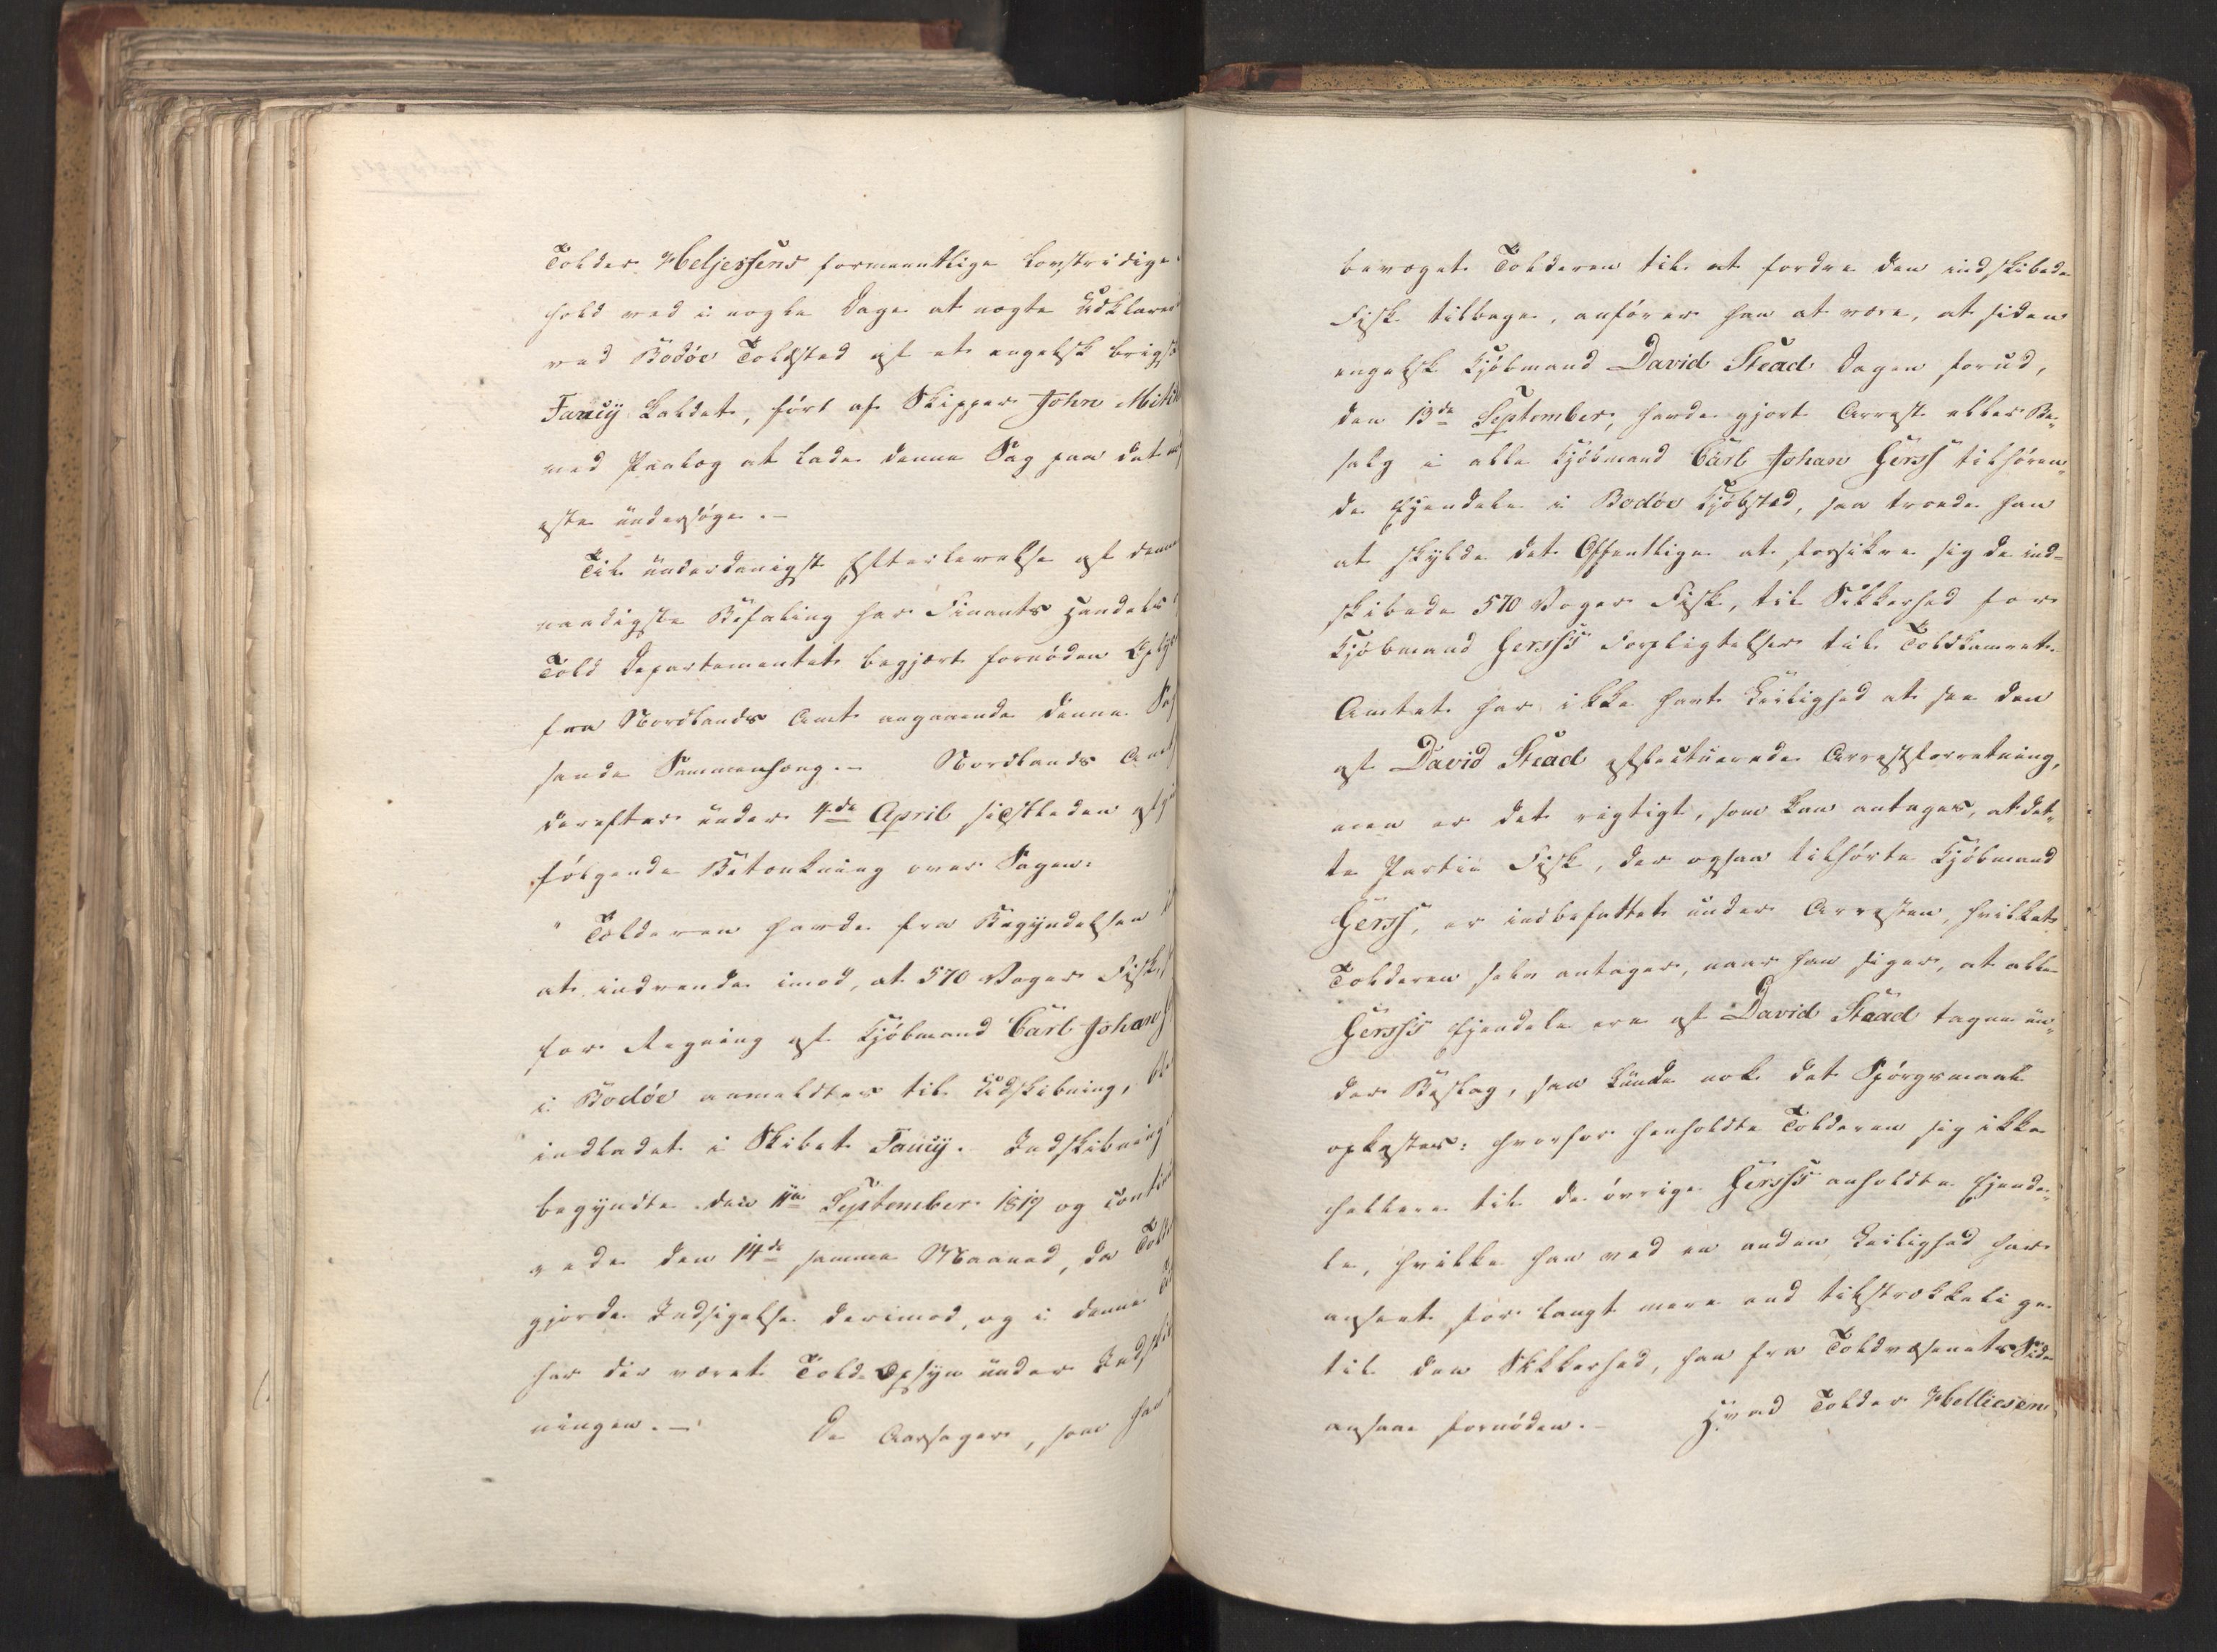 Tolder Heljesens formeentlige lovstridige
hold ved i nogle Dage at nægte Udklarer
ved Bodøe Toldsted af et engelsk Brigs
Fancÿ kaldet, ført af Skipper John
med Paalæg at lade denne Sag paa det
este undersøge.-
Til underdanigst Efterlevelse af denne
naadigste Befaling har Finants Handels
Told Departementet begjært fornøden
fra Nordlands Amt angaaende denne Sag
sande Sammenhæng.- Nordlands Amt
derefter under 4de April sidstleden
følgende Betænkning over Sagen:
" Tolderen havde fra Begyndelsen
at indvende imod, at 570 Voger Fisk,
for Regning af Kjøbmand Carl Johan
i Bodøe anmeldtes til Udskibning,
indladet i Skibet Fancÿ. Indskibning
begyndte den 11te September 1819 og contin
erede den 14de samme Maaned, da Told
gjorde Indsigelse derimod, og i denne
har der været Told Opsyn under Indski
ningen.- De Aarsager, som har
bevæget Tolderen til at fordre den indskibede
Fisk tilbage, anfører han at være, at siden
engelsk Kjøbmand David Stead Dagen forud,
den 13de September, havde gjort Arrest eller Be„
slag i alle Kjøbmand Carl Johan Gerss tilhøren„
de Ejendele i Bodøe Kjøbsted, saa troede han
at skylde det Offentlige at forsikre sig de ind-
skibede 570 Voger Fisk, til Sikkerhed for
Kjøbmand Gersss Forpligtelser til Toldkamret.
Amtet har ikke havt Leilighed at see den
af David Stead effectuerede Arrestforretning,
men er det rigtigt, som kan antages, at det„
te Partie Fisk, der ogsaa tilhørte Kjøbmand
Gerss, er indbefattet under Arresten, hvilket
Tolderen selv antager, naar han siger, at alle
Gersss Ejendele ere af David Stead tagne un„
der Beslag, saa kunde nok det Spørgsmaal
opkastes: hvorfor henholdte Tolderen sig ikke
hellere til de øvrige Gersss anholdte Ejende„
le, hvilke han ved en anden Leilighed har
anseet for langt mere end tilstrækkelige
til den Sikkerhed, han fra Toldvæsenets Side
ansaae fornøden.- Hvad Tolder Helliesen